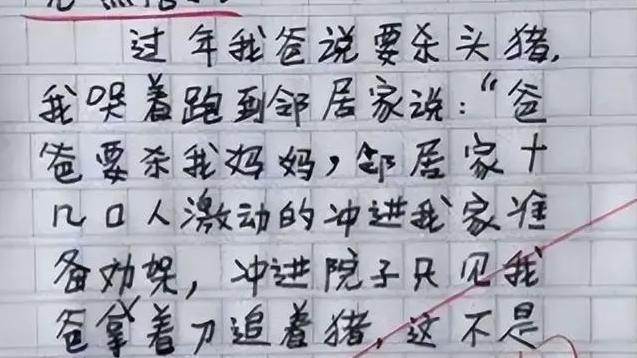 过年我爸说要杀头猪，
我哭着跑到邻居家说：“爸
爸要杀我妈妈，邻居家十
几口人激动的冲进我家准
备劝架，冲进院子只见我
爸拿着刀追着猪，这不是